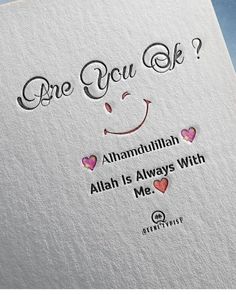 Are You Ok ?
Alhamdulillah
Allah Is Always With
Me.